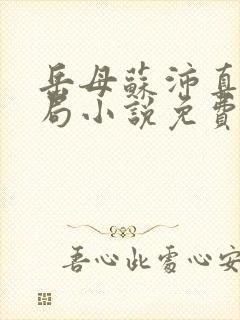 岳母蘇沛真
局小說免費
吾心此處心安